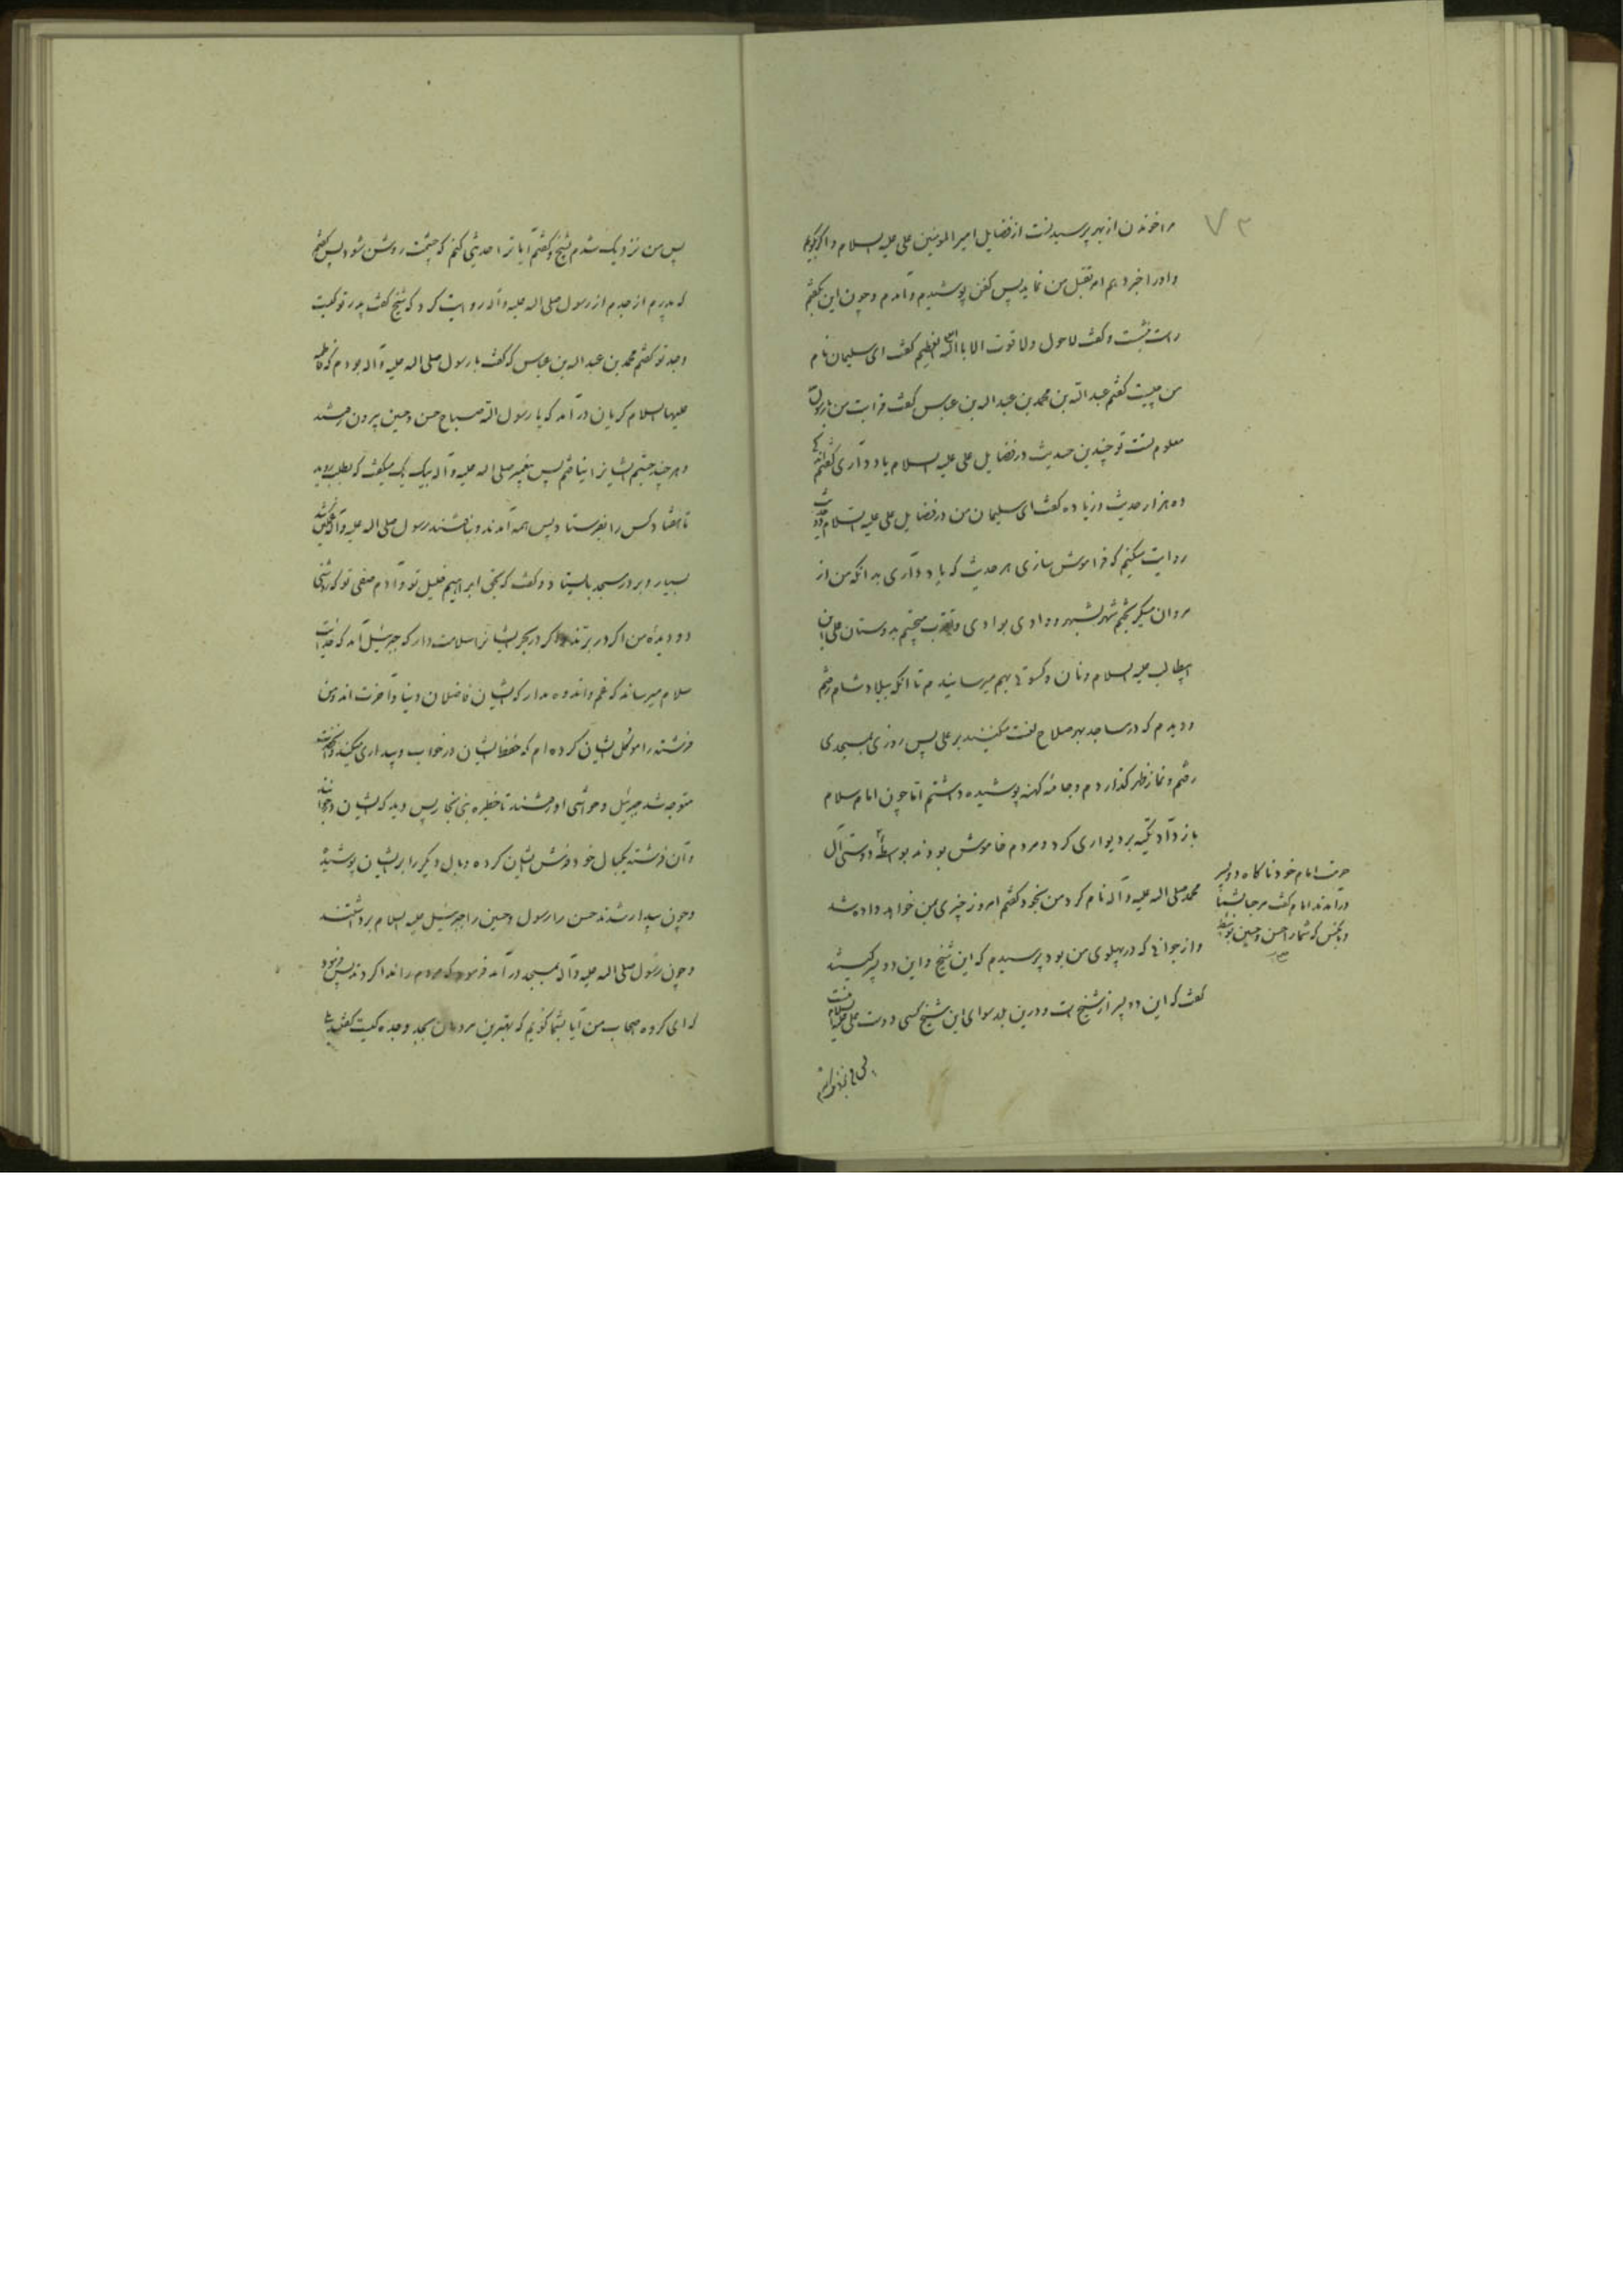 ۷۳
مرا خوندن از بهر پرسیدنست از فضایل امیر المومنین علی علیه السلام و اگر گویم
و او را خبر دهم امر بقتل من نماید پس کفن پوشیدم و آمدم و چون این بگفتم
راست بنشست و گفت لاحول ولا قوت الا بالله العلی العظیم گفت ای سلیمان نام
من چیست گفتم عبد الله بن محمد بن عبد الله بن عباس گفت قرابت من با رسول
معلوم تست تو چندین حدیث در فضایل علی علیه السلام یاد داری گفتم
ده هزار حدیث و زیاده گفت ای سلیمان من در فضایل علی علیه السلام دو حدیث
روایت میکنم که فراموش سازی هر حدیث که یاد داری بدانکه من از
مروان میگریختم شهر بشهر و وادی بوادی و تقرب میجستم بدوستان علی ابن
ابیطالب علیه السلام و نان و کسوتها بهم میرسانیدم تا آنکه ببلاد شام رفتم
و دیدم که در مساجد بهر صلاح لعنت میکنند بر علی پس روزی بمسجدی
رفتم و نماز ظهر گذاردم و جامهٔ کهنه پوشیده داشتم اما چون امام سلام
باز داد تکیه بر دیواری کرد و مردم خاموش بودند بواسطهٔ دوستی آل
محمد صلی الله علیه و آله نام کرد من بخود گفتم امروز چیزی بمن خواهد داده شد
و از جوانی که در پهلوی من بود پرسیدم که این شیخ و این دو پسر کیستند
گفت که این دو پسر از شیخ است و درین بلد سوای این شیخ کسی دوست علی علیه السلام نیست
حرمت امام خود ناگاه دو پسر
درآمدند امام گفت مرحبا بشما
و بکنس که شما را حسن و حسین بواسطه
پس من نزدیک شدم بشیخ و گفتم آیا ترا حدیثی کنم که چشمت روشن شود پس گفتم
که پدرم از جدم از رسول صلی الله علیه و آله روایت کرد که شیخ گفت پدر تو کیست
و جد تو گفتم محمد بن عبد الله بن عباس که گفت با رسول صلی الله علیه و آله بودم که فاطمه
علیها السلام گریان درآمد که یا رسول الله صباح حسن و حسین بیرون رفتند
و هر چند جستم ایشانرا نیافتم پس پیغمبر صلی الله علیه و آله بیک یک میگفت که بطلب روید
تا هفتاد کس را بفرستاد پس همه آمدند و نیافتند رسول صلی الله علیه و آله غمگین شد
بسیار و بر در مسجد بایستاد و گفت که بحق ابراهیم خلیل تو و آدم صفی تو که روشنی
دو دیدهٔ من اگر در برند و اگر در بحر ایشانرا سلامت دار که جبرئیل آمد که خدایت
سلام میرساند که غم و اندوه مدار که ایشان فاضلان دنیا و آخرت اند و من
فرشته را موکل ایشان کرده ام که حفظ ایشان در خواب و بیداری میکند
متوجه شد جبرئیل و حواشی او رفتند تا حظیره بنی نجار پس دید که ایشان در خوابند
و آن فرشته یکبال خود فرش ایشان کرده و بال دیگر را بر ایشان پوشیده
و چون بیدار شدند حسن را رسول و حسین را جبرئیل علیه السلام برداشتند
و چون رسول صلی الله علیه و آله بمسجد درآمد فرمود که مردم را ندا کردند پس فرمود
که ای گروه صحاب من آیا بشما گویم که بهترین مردمان بجد و جده کیست گفتند بلی